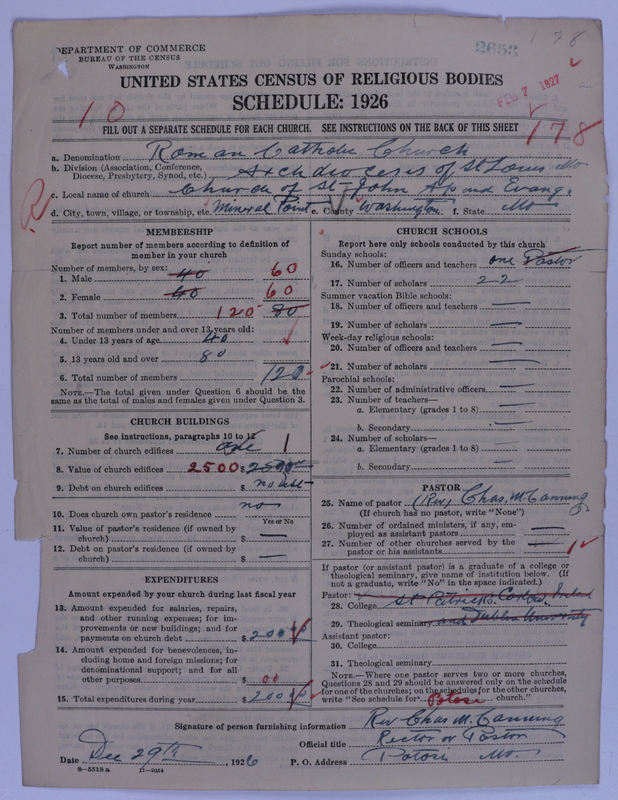 178
2653
DEPARTMENT OF COMMERCE
BUREAU OF THE CENSUS
WASHINGTON
FEB 2 1927
UNITED STATES CENSUS OF RELIGIOUS BODIES
SCHEDULE: 1926
10
FILL OUT A SEPARATE SCHEDULE FOR EACH CHURCH. SEE INSTRUCTIONS ON THE BACK OF THIS SHEET
178
a. Denomination Roman Catholic Church
b. Division (Association, Conference, Diocese, Presbytery, Synod, etc.) Archdiocese of St Louis Mo
R
c. Local name of church Church of St John Ap and Evang.
d. City, town, village, or township, etc. Mineral Point e. County Washington f. State Mo
MEMBERSHIP
Report number of members according to definition of member in your church
Number of members, by sex:
1. Male 40 60
2. Female 40 60
3. Total number of members 120 80
Number of members under and over 13 years old:
4. Under 13 years of age 40
5. 13 years old and over 80
6. Total number of members 120
NOTE.—The total given under Question 6 should be the same as the total of males and females given under Question 3.
CHURCH BUILDINGS
See instructions, paragraphs 10 to 12
7. Number of church edifices one 1
8. Value of church edifices 2500 $ 2500
9. Debt on church edifices $
10. Does church own pastor's residence no
Yes or No
11. Value of pastor's residence (if owned by church) $ —
12. Debt on pastor's residence (if owned by church) $ —
EXPENDITURES
Amount expended by your church during last fiscal year
13. Amount expended for salaries, repairs, and other running expenses; for improvements or new buildings; and for payments on church debt $ 200
14. Amount expended for benevolences, including home and foreign missions; for denominational support; and for all other purposes $ 00
15. Total expenditures during year $ 200
CHURCH SCHOOLS
Report here only schools conducted by this church
Sunday schools:
16. Number of officers and teachers one Pastor
17. Number of scholars 22
Summer vacation Bible schools:
18. Number of officers and teachers —
19. Number of scholars —
Week-day religious schools:
20. Number of officers and teachers —
21. Number of scholars —
Parochial schools:
22. Number of administrative officers —
23. Number of teachers—
a. Elementary (grades 1 to 8) —
b. Secondary —
24. Number of scholars—
a. Elementary (grades 1 to 8) —
b. Secondary —
PASTOR
25. Name of pastor (Rev) Chas. M. Canning
(If church has no pastor, write "None")
26. Number of ordained ministers, if any, employed as assistant pastors —
27. Number of other churches served by the pastor or his assistants — 1
If pastor (or assistant pastor) is a graduate of a college or theological seminary, give name of institution below. (If not a graduate, write "No" in the space indicated.)
Pastor:
28. College St Patrick's Carlow, Ireland
29. Theological seminary and Dublin University
Assistant pastor:
30. College
31. Theological seminary
NOTE.—Where one pastor serves two or more churches, Questions 28 and 29 should be answered only on the schedule for one of the churches; on the schedules for the other churches, write "See schedule for Potosi church."
Signature of person furnishing information Rev Chas M. Canning
Official title Rector or Pastor
Date Dec 29th, 1926 P. O. Address Potosi Mo.
8—5518 a 11—9054